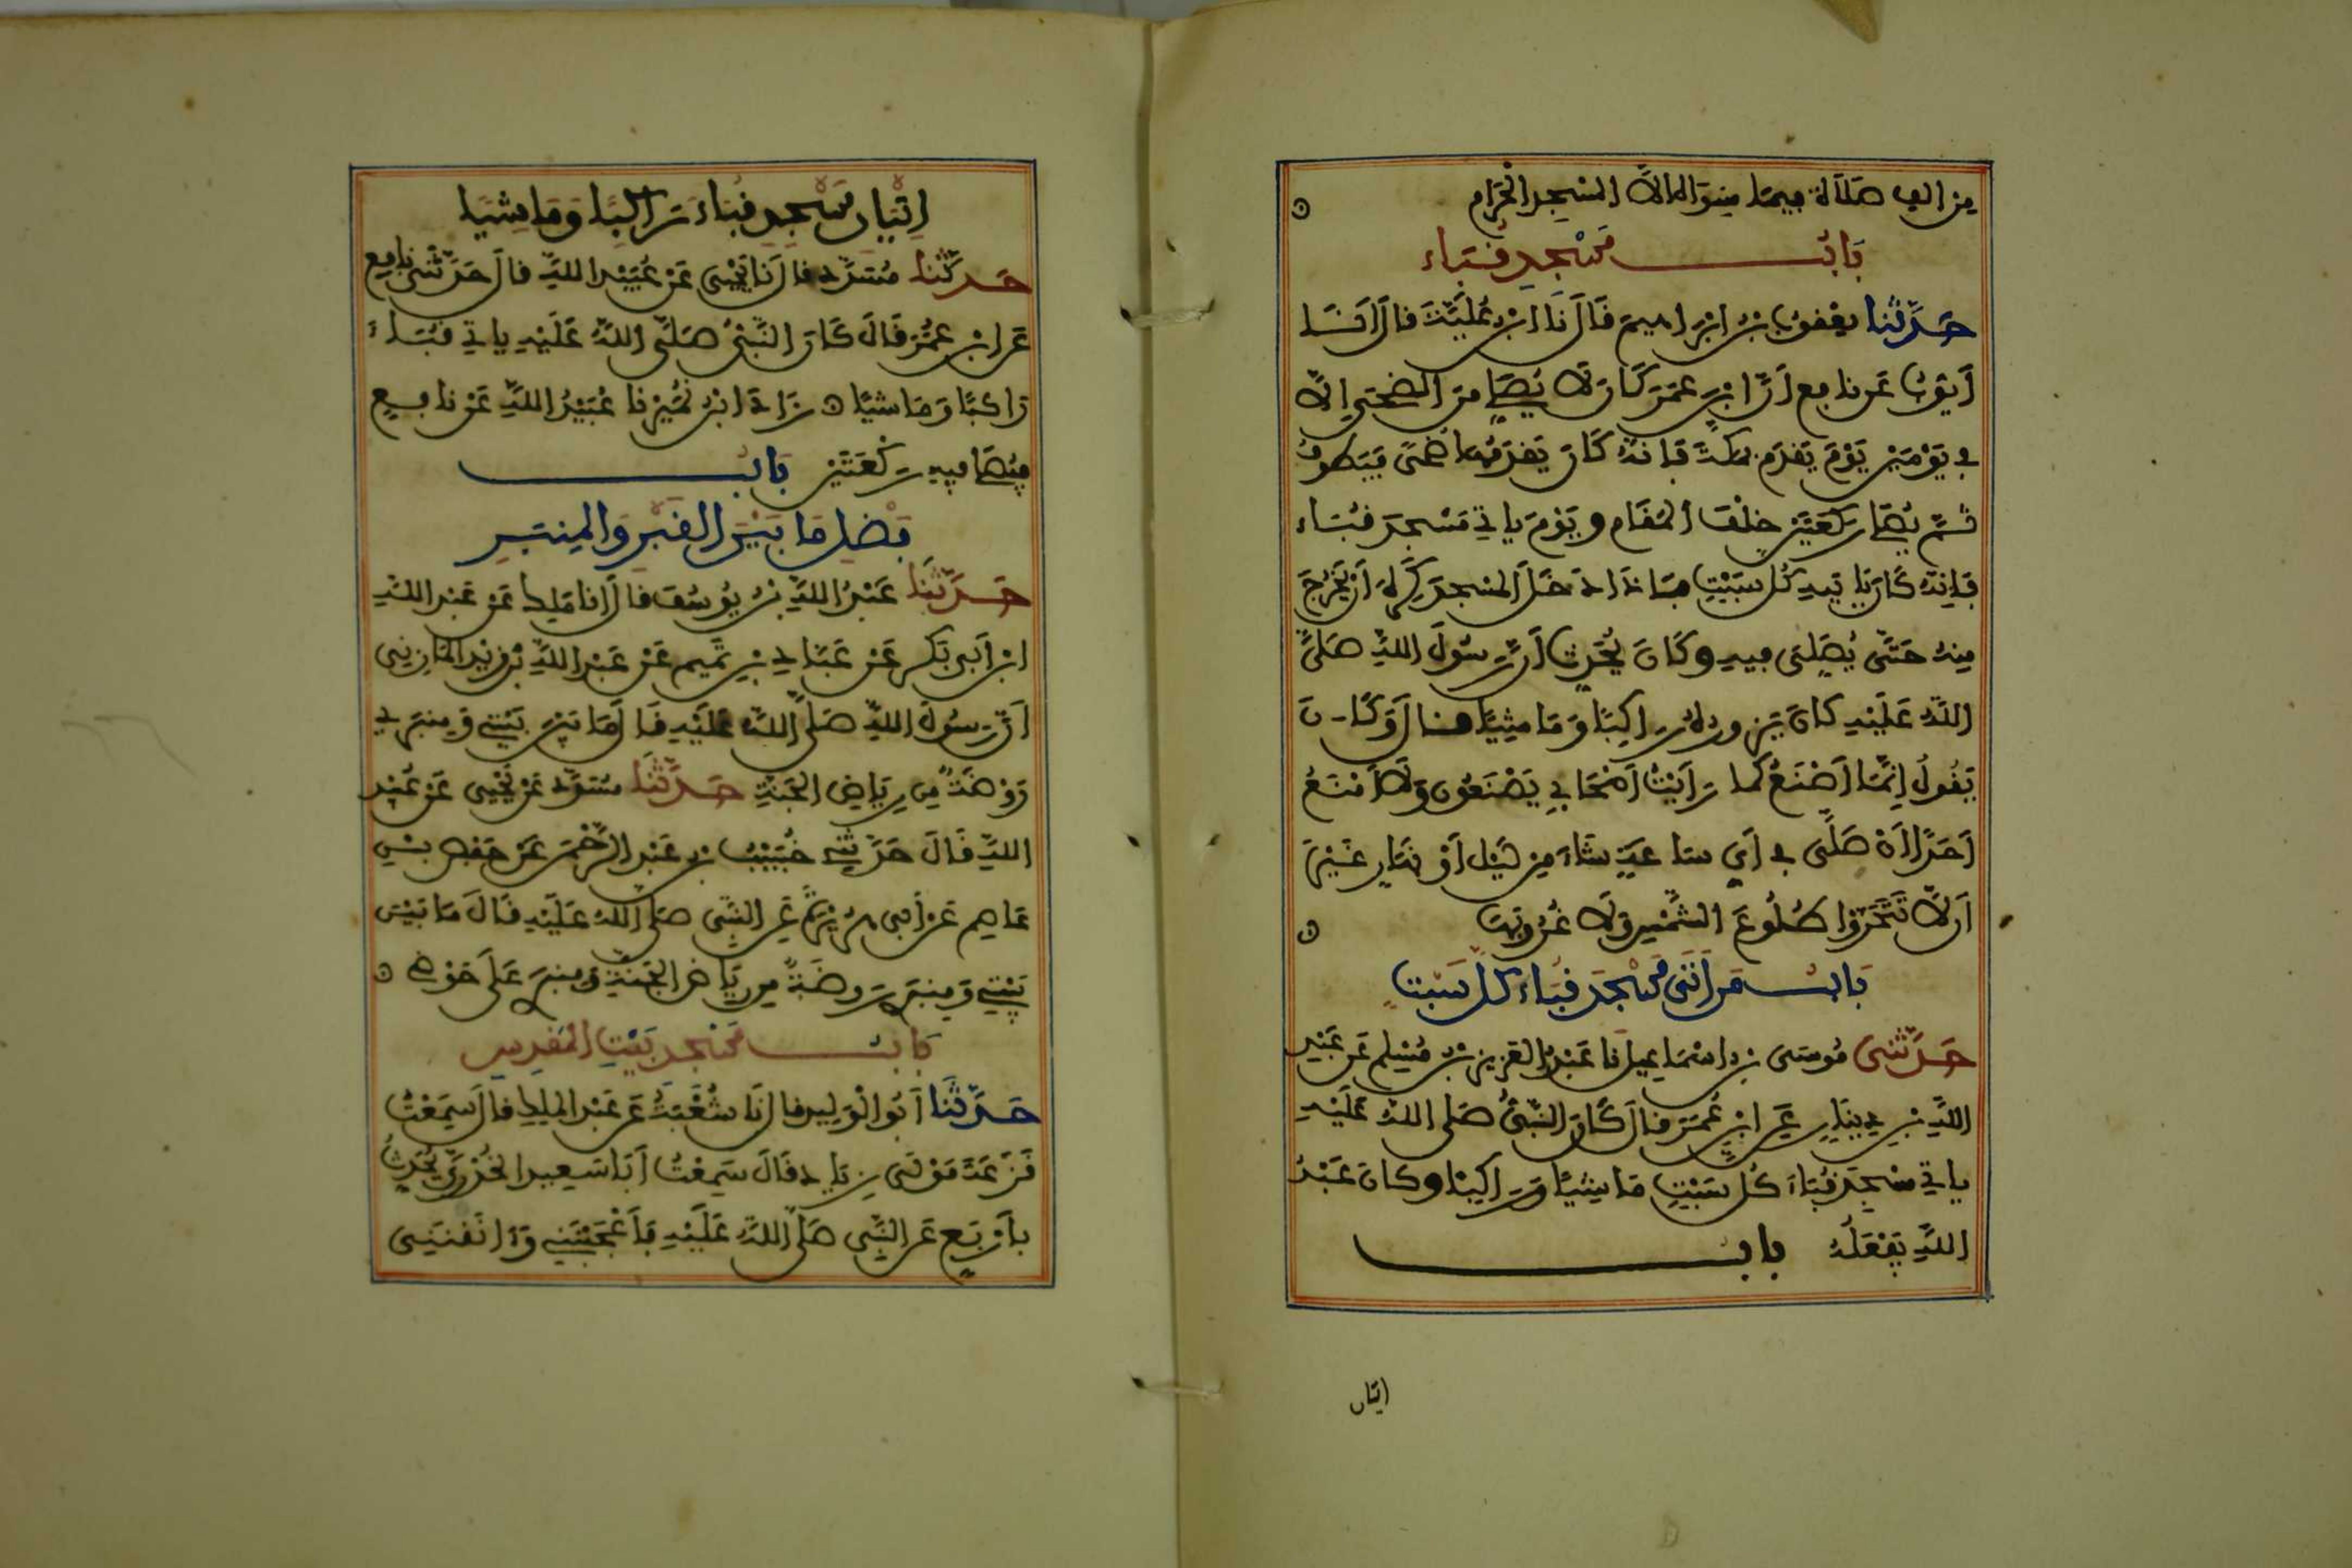 من الف صلاة فيما سواه الا المسجد الحرام
باب مسجد قباء
حدثنا يعقوب بن ابراهيم قال نا ابن علية قال انا
أيوب عن نافع أن ابن عمر كان لا يصلي من الضحى إلا
في يومين يوم يقدم مكة فإنه كان يقدمها ضحى فيطوف
ثم يصلي ركعتين خلف المقام ويوم ياتي مسجد قباء
فإنه كان ياتيه كل سبت فإذا دخل المسجد كره أن يخرج
منه حتى يصلي فيه وكان يحدث أن رسول الله صلى
الله عليه كان يزوره راكبا وماشيا قال وكان
يقول إنما أصنع كما رأيت أصحابي يصنعون ولا أمنع
أحدا أن صلى في أي ساعة شاء من ليل أو نهار غير
أن لا تتحروا طلوع الشمس ولا غروبها
باب من أتى مسجد قباء كل سبت
حدثني موسى بن اسماعيل نا عبد العزيز بن مسلم عن عبد
الله بن دينار عن ابن عمر قال كان النبي صلى الله عليه
ياتي مسجد قباء كل سبت ماشيا وراكبا وكان عبد
الله يفعله باب
اتيان
إتيان مسجد قباء راكبا وماشيا
حدثنا مسدد قال نا يحيى عن عبيد الله قال حدثني نافع
عن ابن عمر قال كان النبي صلى الله عليه ياتي قباء
راكبا وماشيا زاد ابن نمير نا عبيد الله عن نافع
فيصلي فيه ركعتين باب
فضل ما بين القبر والمنبر
حدثنا عبد الله بن يوسف قال انا ملك عن عبد الله
ابن أبي بكر عن عباد بن تميم عن عبد الله بن زيد المازني
أن رسول الله صلى الله عليه قال ما بين بيتي ومنبري
روضة من رياض الجنة حدثنا مسدد عن يحيى عن عبيد
الله قال حدثني خبيب بن عبد الرحمن عن حفص بن
عاصم عن أبي هريرة عن النبي صلى الله عليه قال ما بين
بيتي ومنبري روضة من رياض الجنة ومنبري على حوضي
باب مسجد بيت المقدس
حدثنا أبو الوليد قال نا شعبة عن عبد الملك قال سمعت
قزعة مولى زياد قال سمعت أبا سعيد الخدري يحدث
بأربع عن النبي صلى الله عليه فأعجبنني وانقنني